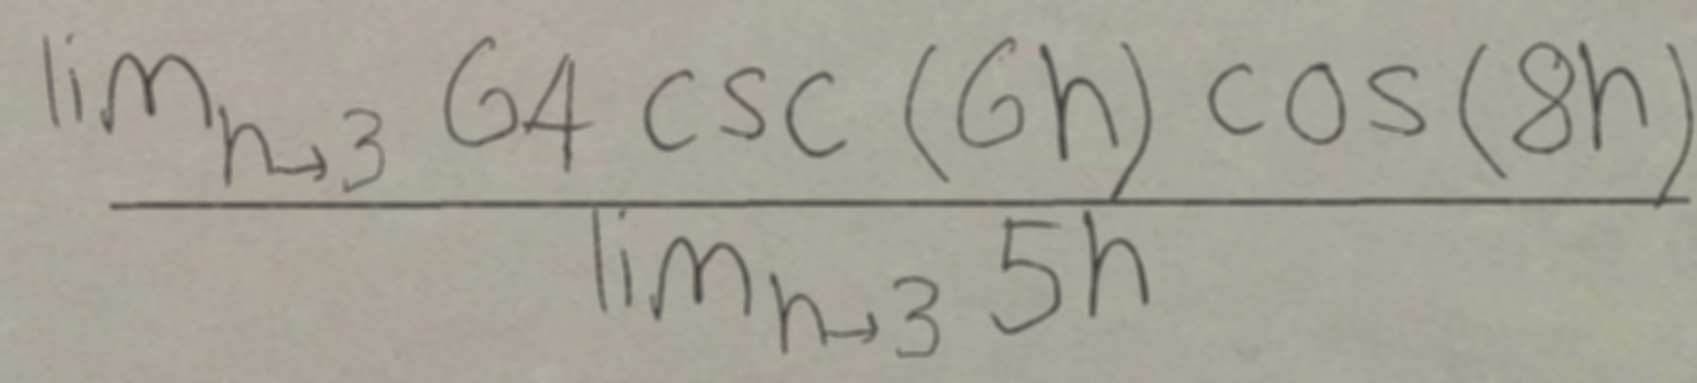 lim_{h→3} 64 csc(6h) cos(8h)
lim_{h→3} 5h